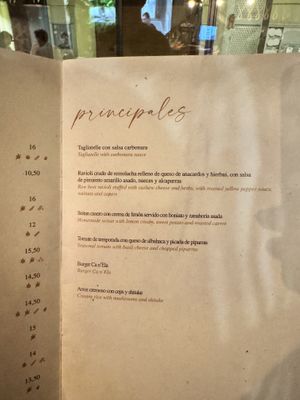 principales
16
Tagliatelle con salsa carbonara
Tagliatelle with carbonara sauce
10,50
Ravioli crudo de remolacha relleno de queso de anacardos y hierbas, con salsa
de pimiento amarillo asado, nueces y alcaparras
Raw beet ravioli stuffed with cashew cheese and herbs, with roasted yellow pepper sauce,
walnuts and capers
16
Seitan casero con crema de limón servido con boniato y zanahoria asada
Homemade seitan with lemon cream, sweet potato and roasted carrot
12
Tomate de temporada con queso de albahaca y picada de piparras
Seasonal tomato with basil cheese and chopped piparras
15,50
Burger Ca n'Ela
Burger Ca n'Ela
14,50
Arroz cremoso con ceps y shitake
Creamy rice with mushrooms and shitake
14,50
15
14
13,50